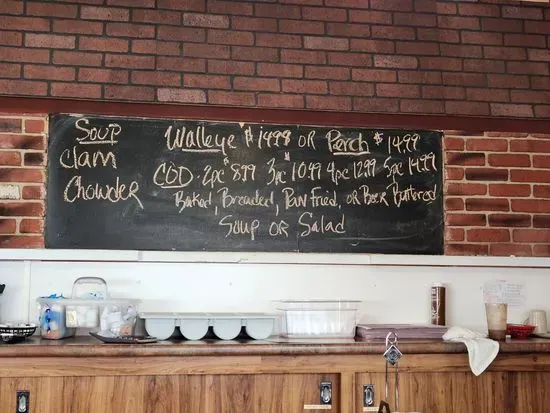 Soup
Clam
Chowder
Walleye $14.99 OR Perch $14.99
COD - 2pc $8.99 3pc $10.49 4pc 12.99 5pc 14.99
Baked, Breaded, Pan Fried, OR Beer Battered
Soup OR Salad